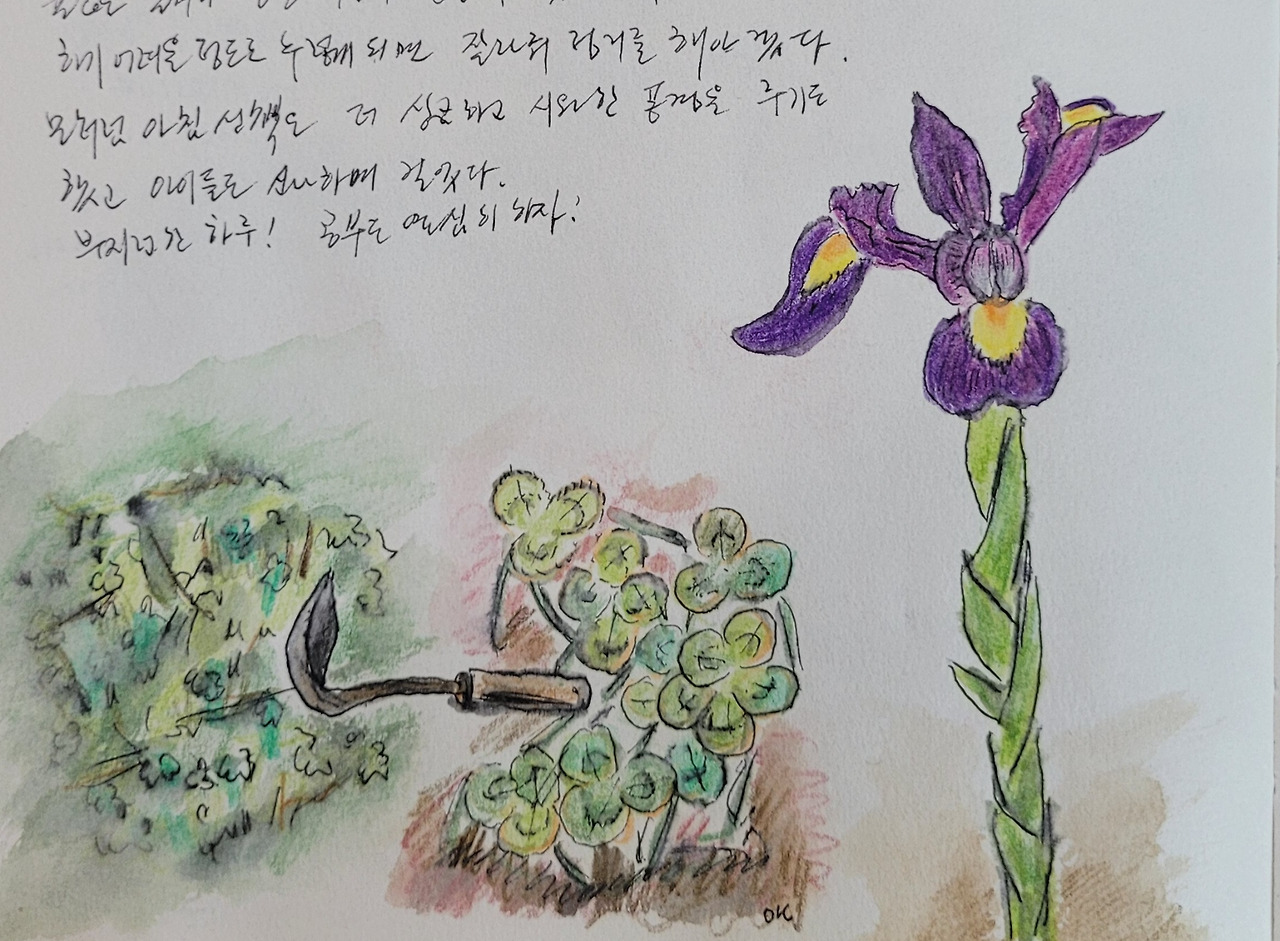 하기 어려울 정도로 누렇게 되면 잘라줘 정리를 해야 겠다.
아침 산책은 더 상큼하고 시원한 풍경을 주기도
했고 아이들도 신나하며 걸었다.
부지런한 하루! 공부도 열심히 하자!
OK